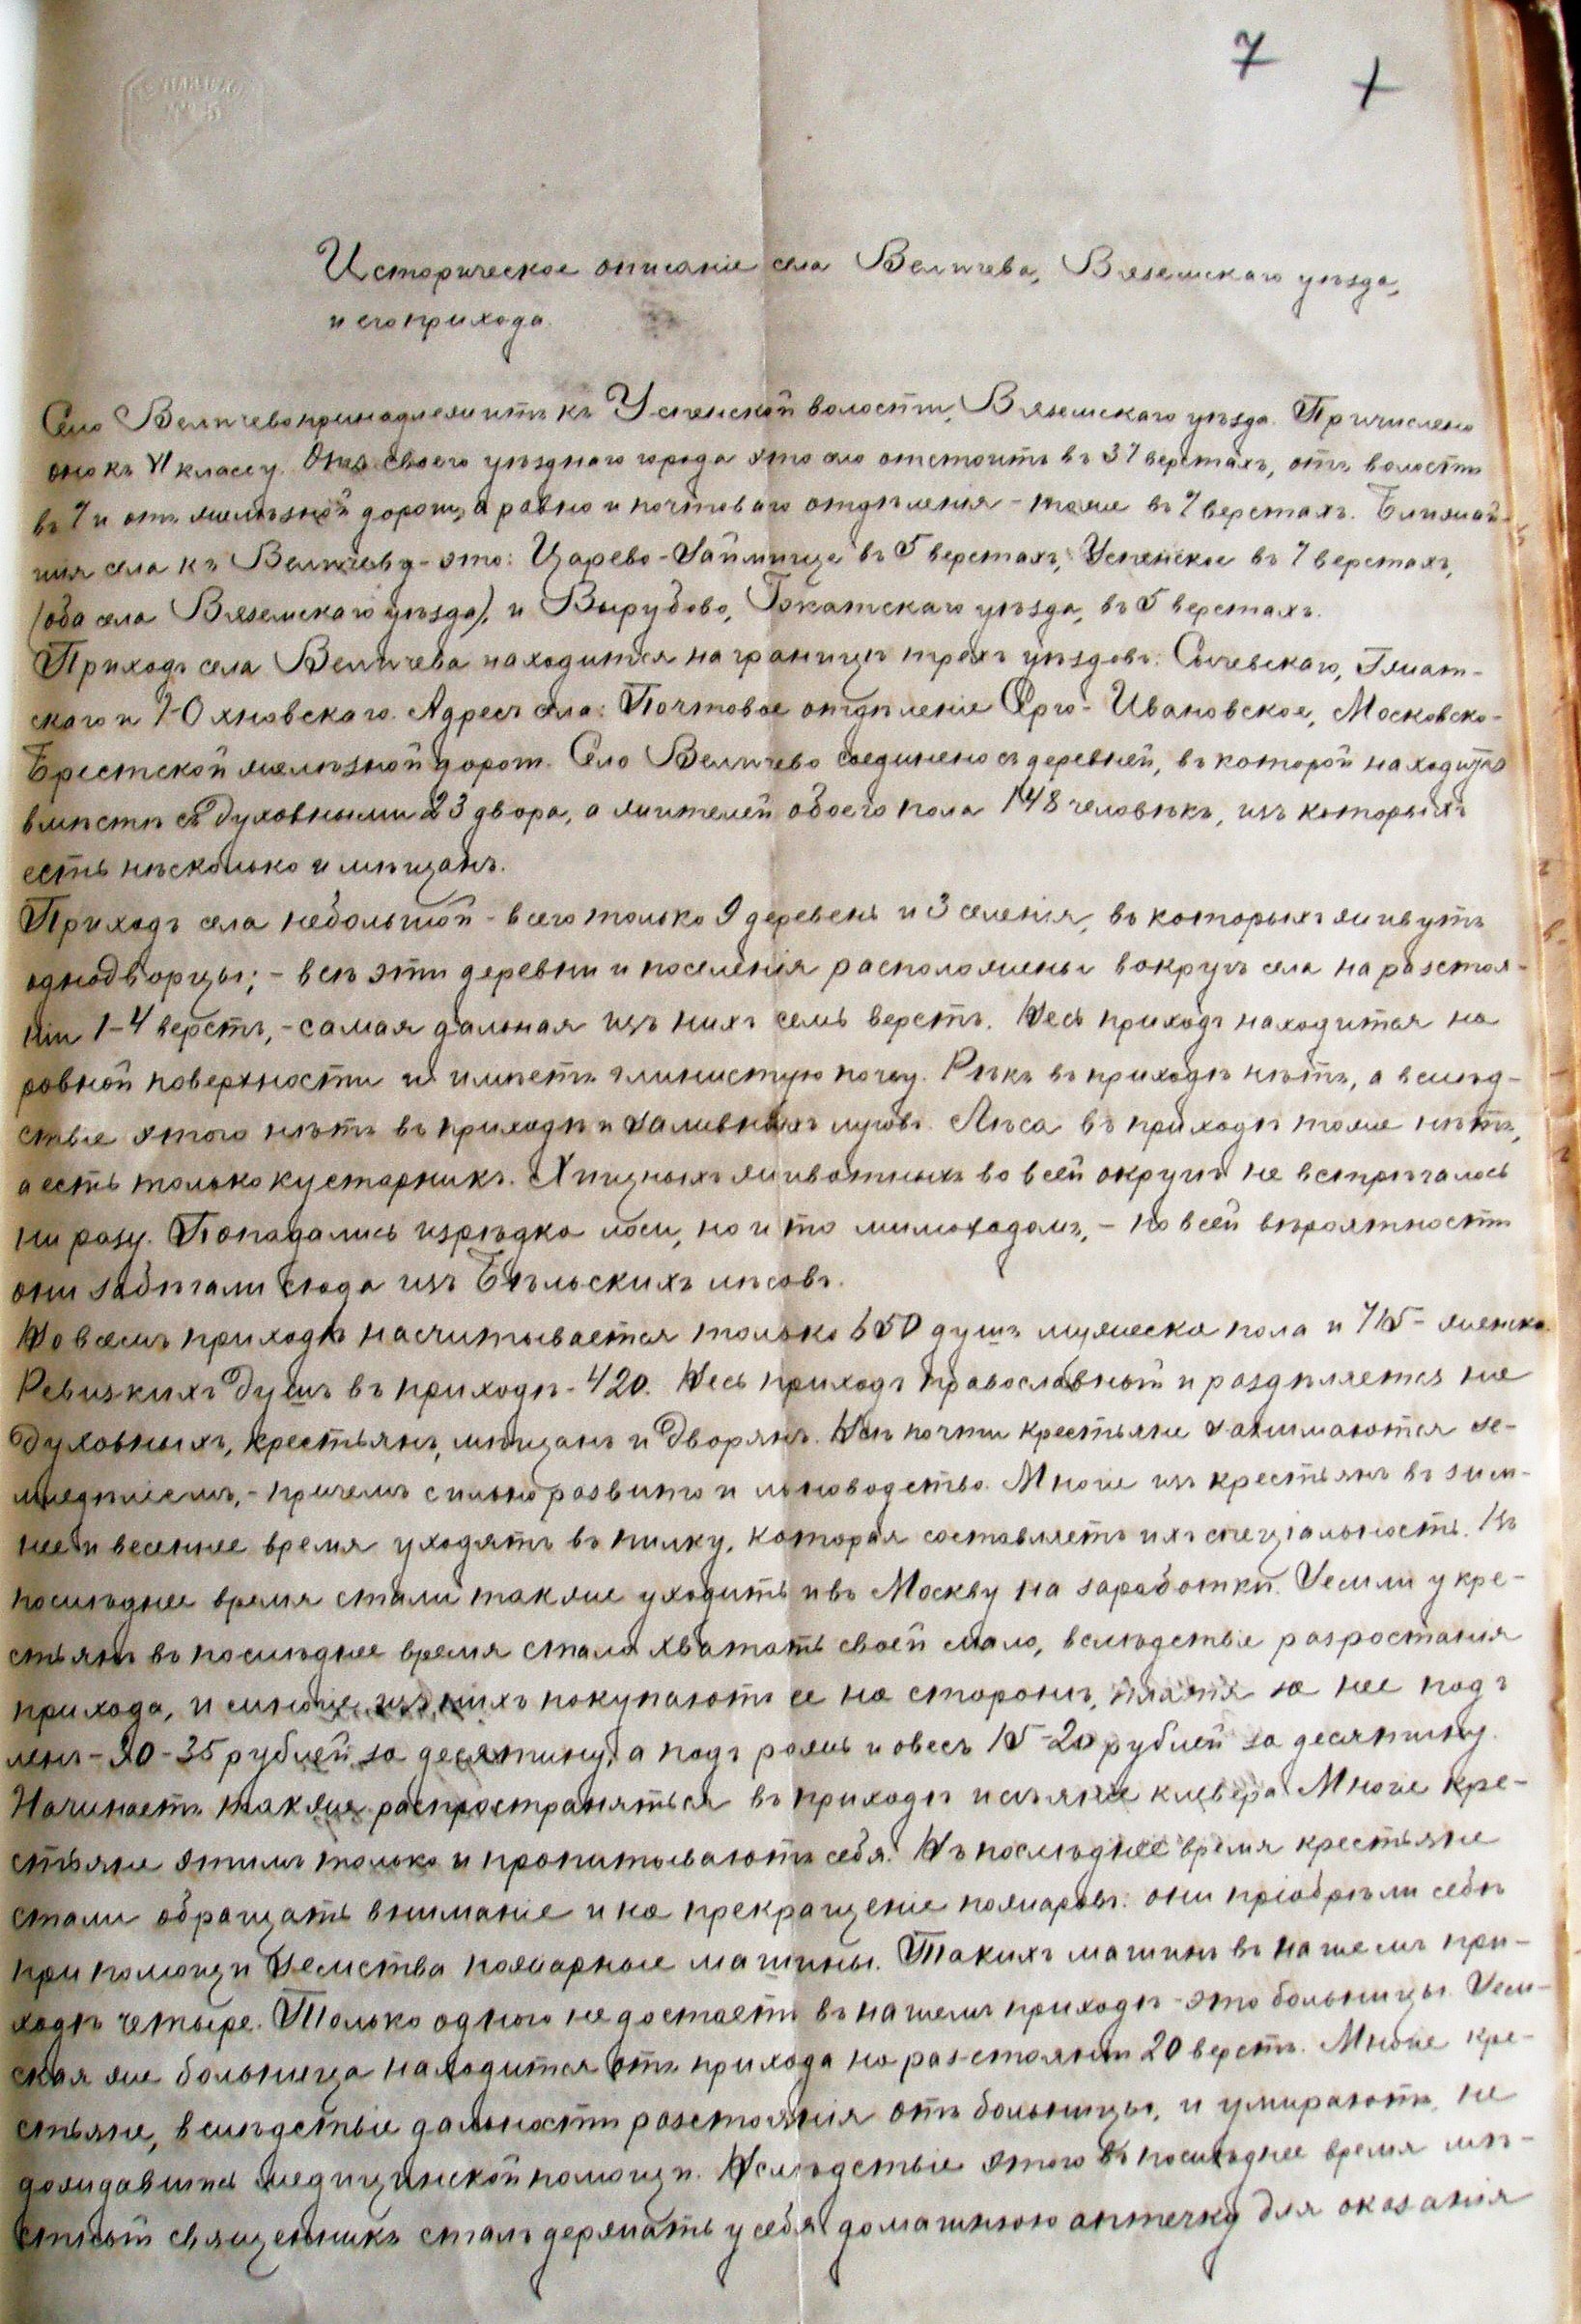 7
№ 5
Историческое описаніе села Величева, Вяземскаго уѣзда,
и его прихода.
Село Величево принадлежитъ къ Успенской волости, Вяземскаго уѣзда. Причислено
оно къ VI классу. Отъ своего уѣзднаго города это село отстоитъ въ 37 верстахъ, отъ волости
въ 7 и отъ желѣзной дороги, а равно и почтоваго отдѣленія – тоже въ 7 верстахъ. Ближай-
шія села къ Величеву – это: Царево-Займище въ 5 верстахъ, Успенское въ 7 верстахъ,
(оба села Вяземскаго уѣзда), и Вырубово, Гжатскаго уѣзда, въ 5 верстахъ.
Приходъ села Величева находится на границѣ трехъ уѣздовъ: Сычевскаго, Гжат-
скаго и Юхновскаго. Адресъ села: Почтовое отдѣленіе Серго-Ивановское, Московско-
Брестской желѣзной дороги. Село Величево соединено съ деревней, въ которой находится
вмѣстѣ съ духовными 23 двора, а жителей обоего пола 148 человѣкъ, изъ которыхъ
есть нѣсколько и мѣщанъ.
Приходъ села небольшой – всего только 9 деревень и 3 селенія, въ которыхъ живутъ
однодворцы; – всѣ эти деревни и поселенія расположены вокругъ села на разстоя-
ніи 1–4 верстъ, – самая дальная изъ нихъ семь верстъ. Весь приходъ находится на
ровной поверхности и имѣетъ глинистую почву. Рѣкъ въ приходѣ нѣтъ, а вслѣд-
ствіе этого нѣтъ въ приходѣ и заливныхъ луговъ. Лѣса въ приходѣ тоже нѣтъ,
а есть только кустарникъ. Хищныхъ животныхъ во всей округѣ не встрѣчалось
ни разу. Попадались изрѣдка лоси, но и то мимоходомъ, – по всей вѣроятности
они забѣгали сюда изъ Бѣльскихъ лѣсовъ.
Во всемъ приходѣ насчитывается только 650 душъ мужеска пола и 715 – женска.
Ревизкихъ душъ въ приходѣ – 420. Весь приходъ православный и раздѣляется на
духовныхъ, крестьянъ, мѣщанъ и дворянъ. Всѣ почти крестьяне занимаются зе-
мледѣліемъ, – причемъ сильно развито и льноводство. Многіе изъ крестьянъ въ зим-
нее и весеннее время уходятъ въ пилку, которая составляетъ ихъ спеціальность. Въ
послѣднее время стали также уходить и въ Москву на заработки. Земли у кре-
стьянъ въ послѣднее время стало хватать своей мало, вслѣдствіе разростанія
прихода, и многіе изъ нихъ покупаютъ ее на сторонѣ, платя за нее подъ
ленъ – 30–35 рублей за десятину, а подъ рожь и овесъ 15–20 рублей за десятину.
Начинаетъ также распространяться въ приходѣ и сѣяніе клевера. Многіе кре-
стьяне этимъ только и пропитываютъ себя. Въ послѣднее время крестьяне
стали обращать вниманіе и на прекращеніе пожаровъ: они пріобрѣли себѣ
при помощи Земства пожарные машины. Такихъ машинъ въ нашемъ при-
ходѣ четыре. Только одного не достаетъ въ нашемъ приходѣ – это больницы. Зем-
ская же больница находится отъ прихода на разстояніи 20 верстъ. Многіе кре-
стьяне, вслѣдствіе дальности разстоянія отъ больницы, и умираютъ, не
дождавшись медицинской помощи. Вслѣдствіе этого въ послѣднее время мѣ-
стный священникъ сталъ держать у себя домашнюю аптечку для оказанія